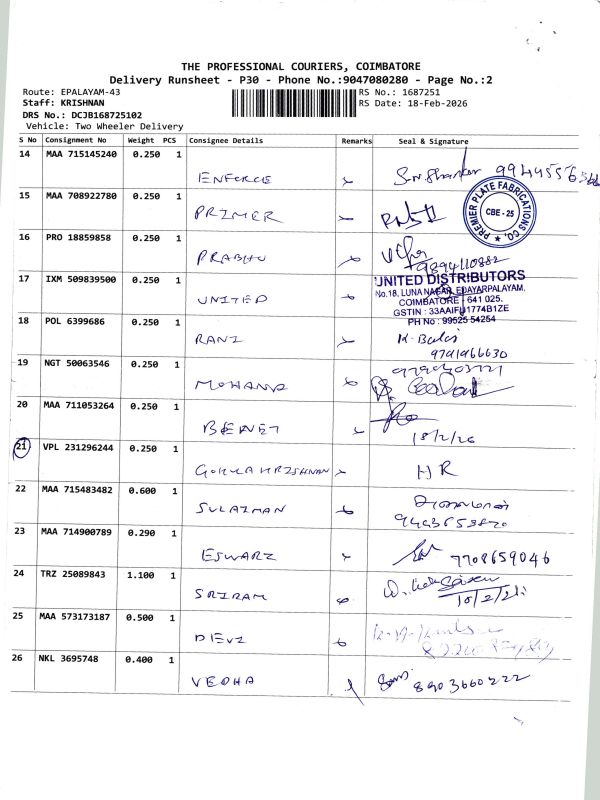 THE PROFESSIONAL COURIERS, COIMBATORE
Delivery Runsheet - P30 - Phone No.:9047080280 - Page No.:2
Route: EPALAYAM-43
RS No.: 1687251
Staff: KRISHNAN
RS Date: 18-Feb-2026
DRS No.: DCJB168725102
Vehicle: Two Wheeler Delivery
S No Consignment No Weight PCS Consignee Details Remarks Seal & Signature
14 MAA 715145240 0.250 1
ENFORCE
15 MAA 708922780 0.250 1
PRIMER
PREMIER PLATE FABRICATIONS CO.
CBE - 25
16 PRO 18859858 0.250 1
PRABHU
9894110882
17 IXM 509839500 0.250 1
UNITED
UNITED DISTRIBUTORS
No.18, LUNA NAGAR, EDAYARPALAYAM,
COIMBATORE - 641 025.
GSTIN : 33AAIFU1774B1ZE
PH No : 99525 54254
18 POL 6399686 0.250 1
RANI
9791966630
19 NGT 50063546 0.250 1
MOHANA
20 MAA 711053264 0.250 1
BENET
18/2/26
21 VPL 231296244 0.250 1
GOKULAKRISHNAN HR
22 MAA 715483482 0.600 1
SULAIMAN
23 MAA 714900789 0.290 1
ESWARI 7708659046
24 TRZ 25089843 1.100 1
SRIRAM
18/2/26
25 MAA 573173187 0.500 1
DEVI
26 NKL 3695748 0.400 1
VEDHA 8903660222